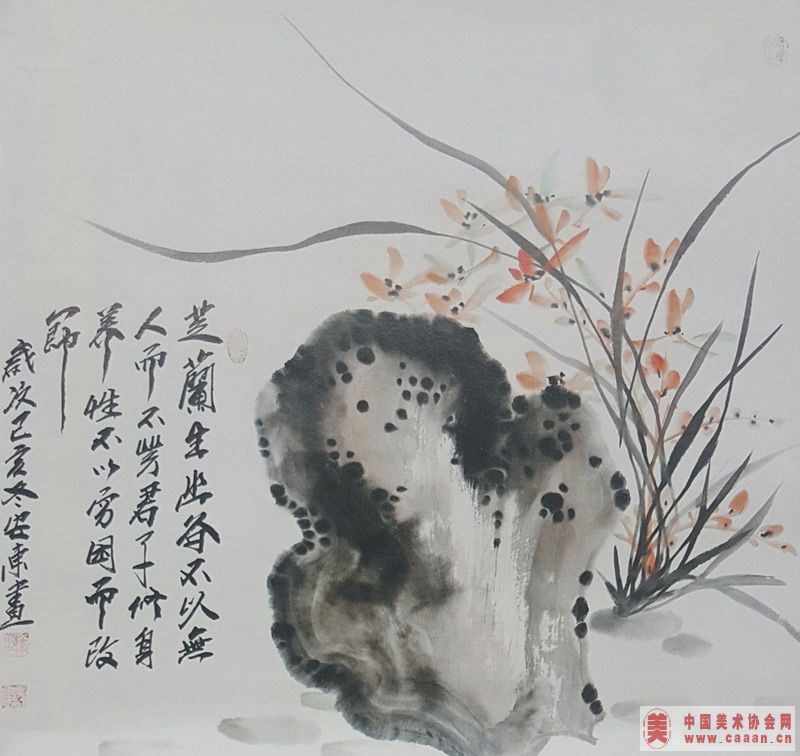 芝蘭生幽谷不以無
人而不芳君子修身
養性不以窮困而改
節
歲次己亥冬安東畫
美 中国美术协会网
www.caaan.cn